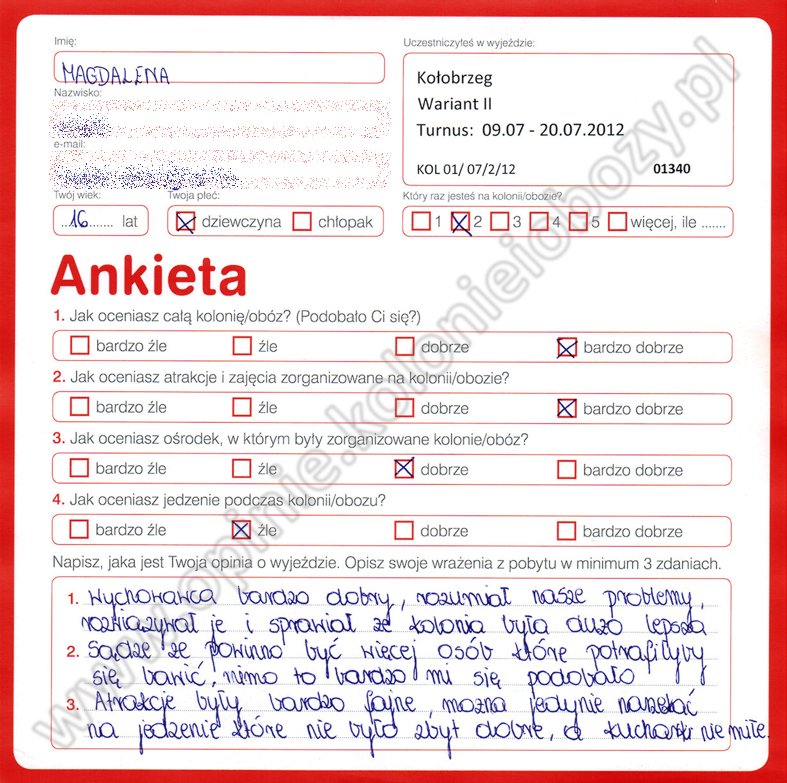 Imię:
MAGDALENA
Nazwisko:
e-mail:
Twój wiek:
16 lat
Twoja płeć:
dziewczyna chłopak
Uczestniczyłeś w wyjeździe:
Kołobrzeg
Wariant II
Turnus: 09.07 - 20.07.2012
KOL 01/ 07/2/12 01340
Który raz jesteś na kolonii/obozie?
1 2 3 4 5 więcej, ile .......
Ankieta
1. Jak oceniasz całą kolonię/obóz? (Podobało Ci się?)
bardzo źle źle dobrze bardzo dobrze
2. Jak oceniasz atrakcje i zajęcia zorganizowane na kolonii/obozie?
bardzo źle źle dobrze bardzo dobrze
3. Jak oceniasz ośrodek, w którym były zorganizowane kolonie/obóz?
bardzo źle źle dobrze bardzo dobrze
4. Jak oceniasz jedzenie podczas kolonii/obozu?
bardzo źle źle dobrze bardzo dobrze
Napisz, jaka jest Twoja opinia o wyjeździe. Opisz swoje wrażenia z pobytu w minimum 3 zdaniach.
1. Wychowawca bardzo dobry, rozumiał nasze problemy,
rozwiazywał je i sprawiał ze kolonia była dużo lepsza
2. Sądze ze powinno być więcej osób które potrafiłyby
się bawić, mimo to bardzo mi się podobało
3. Atrakcje były bardzo fajne, mozna jedynie narzekać
na jedzenie które nie było zbyt dobre, a kucharki nie miłe.
www.opinie.kolonieiobozy.pl